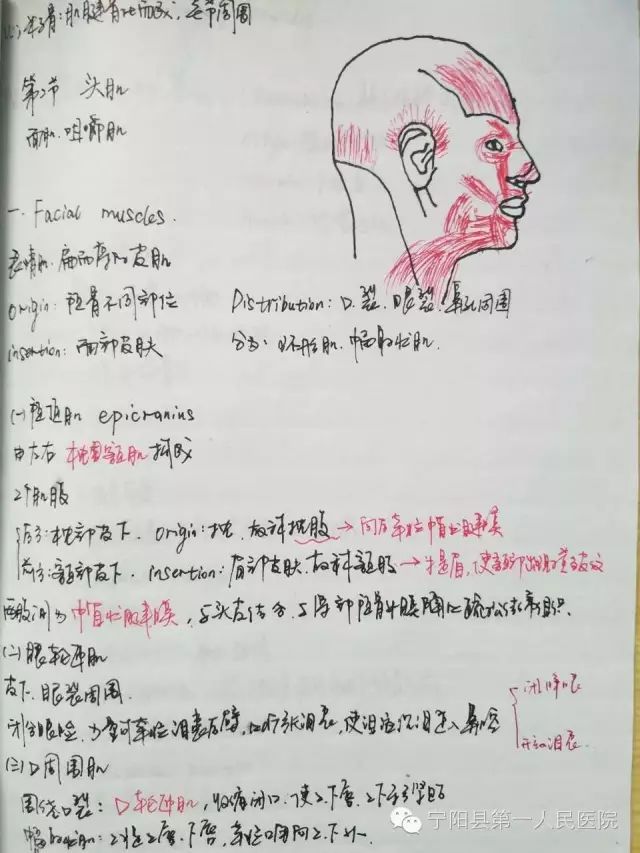 籽骨:肌腱骨化而成,关节周围
第2节 头肌
面肌、咀嚼肌
一. Facial muscles.
表情肌,扁而薄的皮肌
origin:颅骨不同部位 Distribution:口裂、眼裂、鼻孔周围
insertion:面部皮肤 分为:环形肌、辐射状肌.
(一)颅顶肌 epicranius
由左右枕额肌构成
2个肌腹
后方:枕部皮下. origin:枕,故称枕腹→向后牵拉帽状腱膜
前方:额部皮下. insertion:眉部皮肤.故称额腹→提眉,使额部出现皱纹
两腹间为帽状腱膜,与头皮结合,与深部颅骨外膜隔以疏松结缔组织.
(二)眼轮匝肌
皮下.眼裂周围.
闭合眼睑, 泪囊 ,使泪液 进入鼻腔
闭眼
泪囊.
(三)口周围肌
围绕口裂:口轮匝肌,收缩闭口,使上下唇、上下牙
辐射状肌:上提上唇、下唇,牵拉口角向上下外.
宁阳县第一人民医院